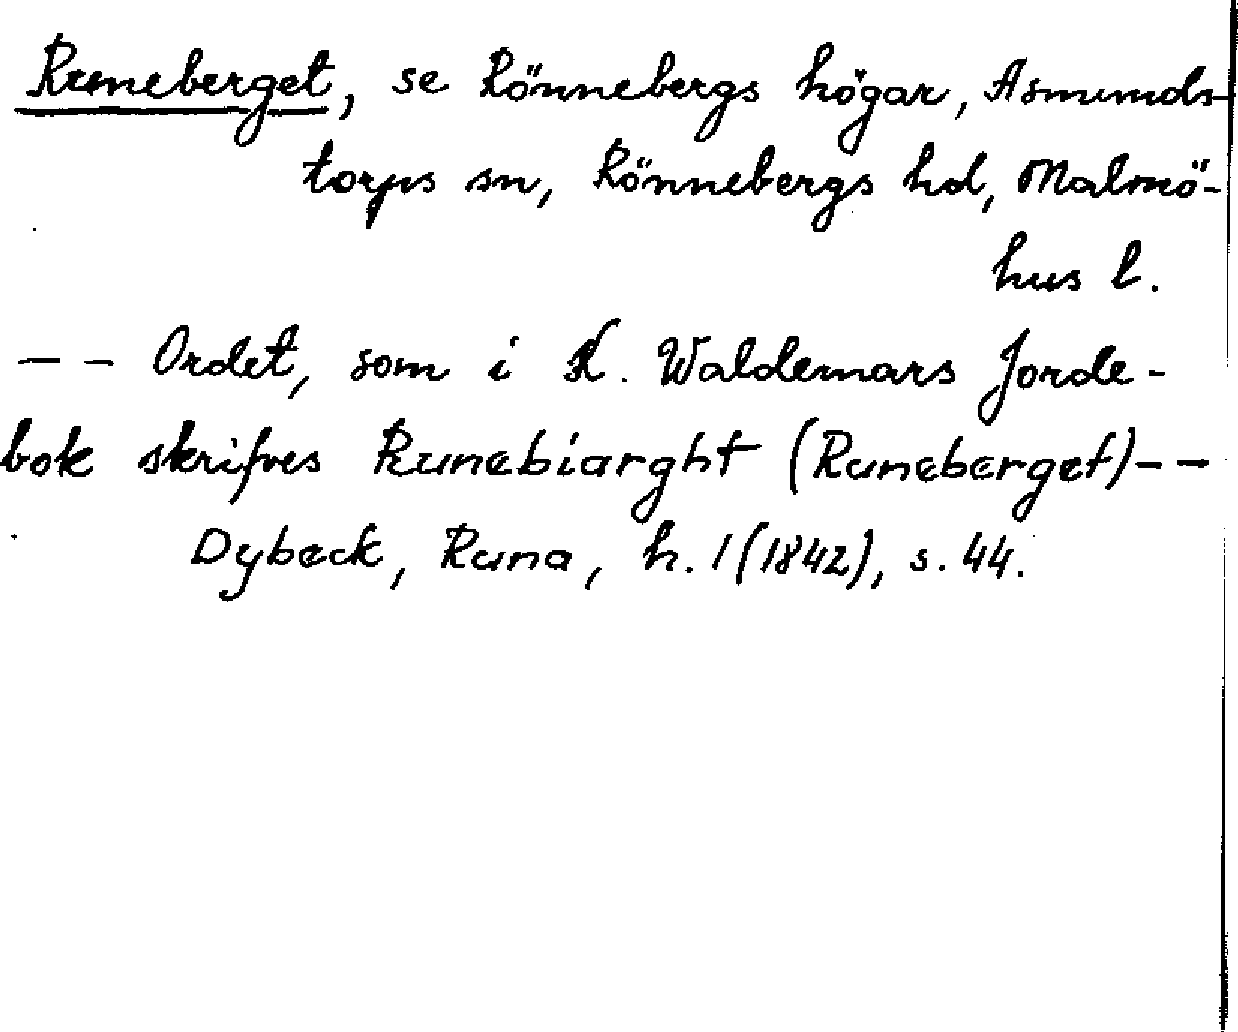 Runeberget, se Rönnebergs högar, Asmunds-
torps sn, Rönnebergs hd, Malmö-
hus l.
-- Ordet, som i K. Waldemars Jorde-
bok skrifves Runebiarght (Runeberget)--
Dybeck, Runa, h. 1 (1842), s. 44.